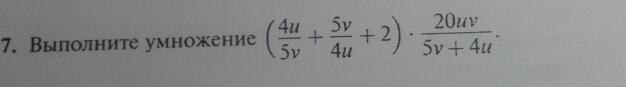 7. Выполните умножение (4u/5v + 5v/4u + 2) · 20uv/(5v + 4u).